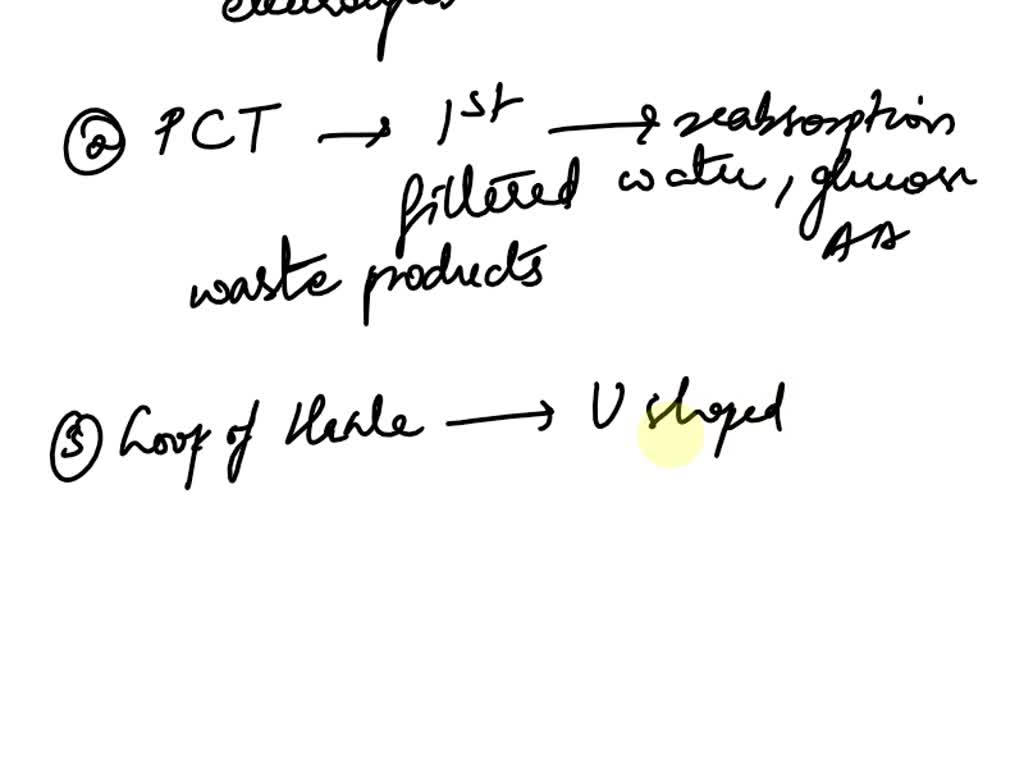 electrolytes
② PCT → 1st → reabsorption
filtered water, glucose
AA
waste products
③ Loop of Henle → U shaped